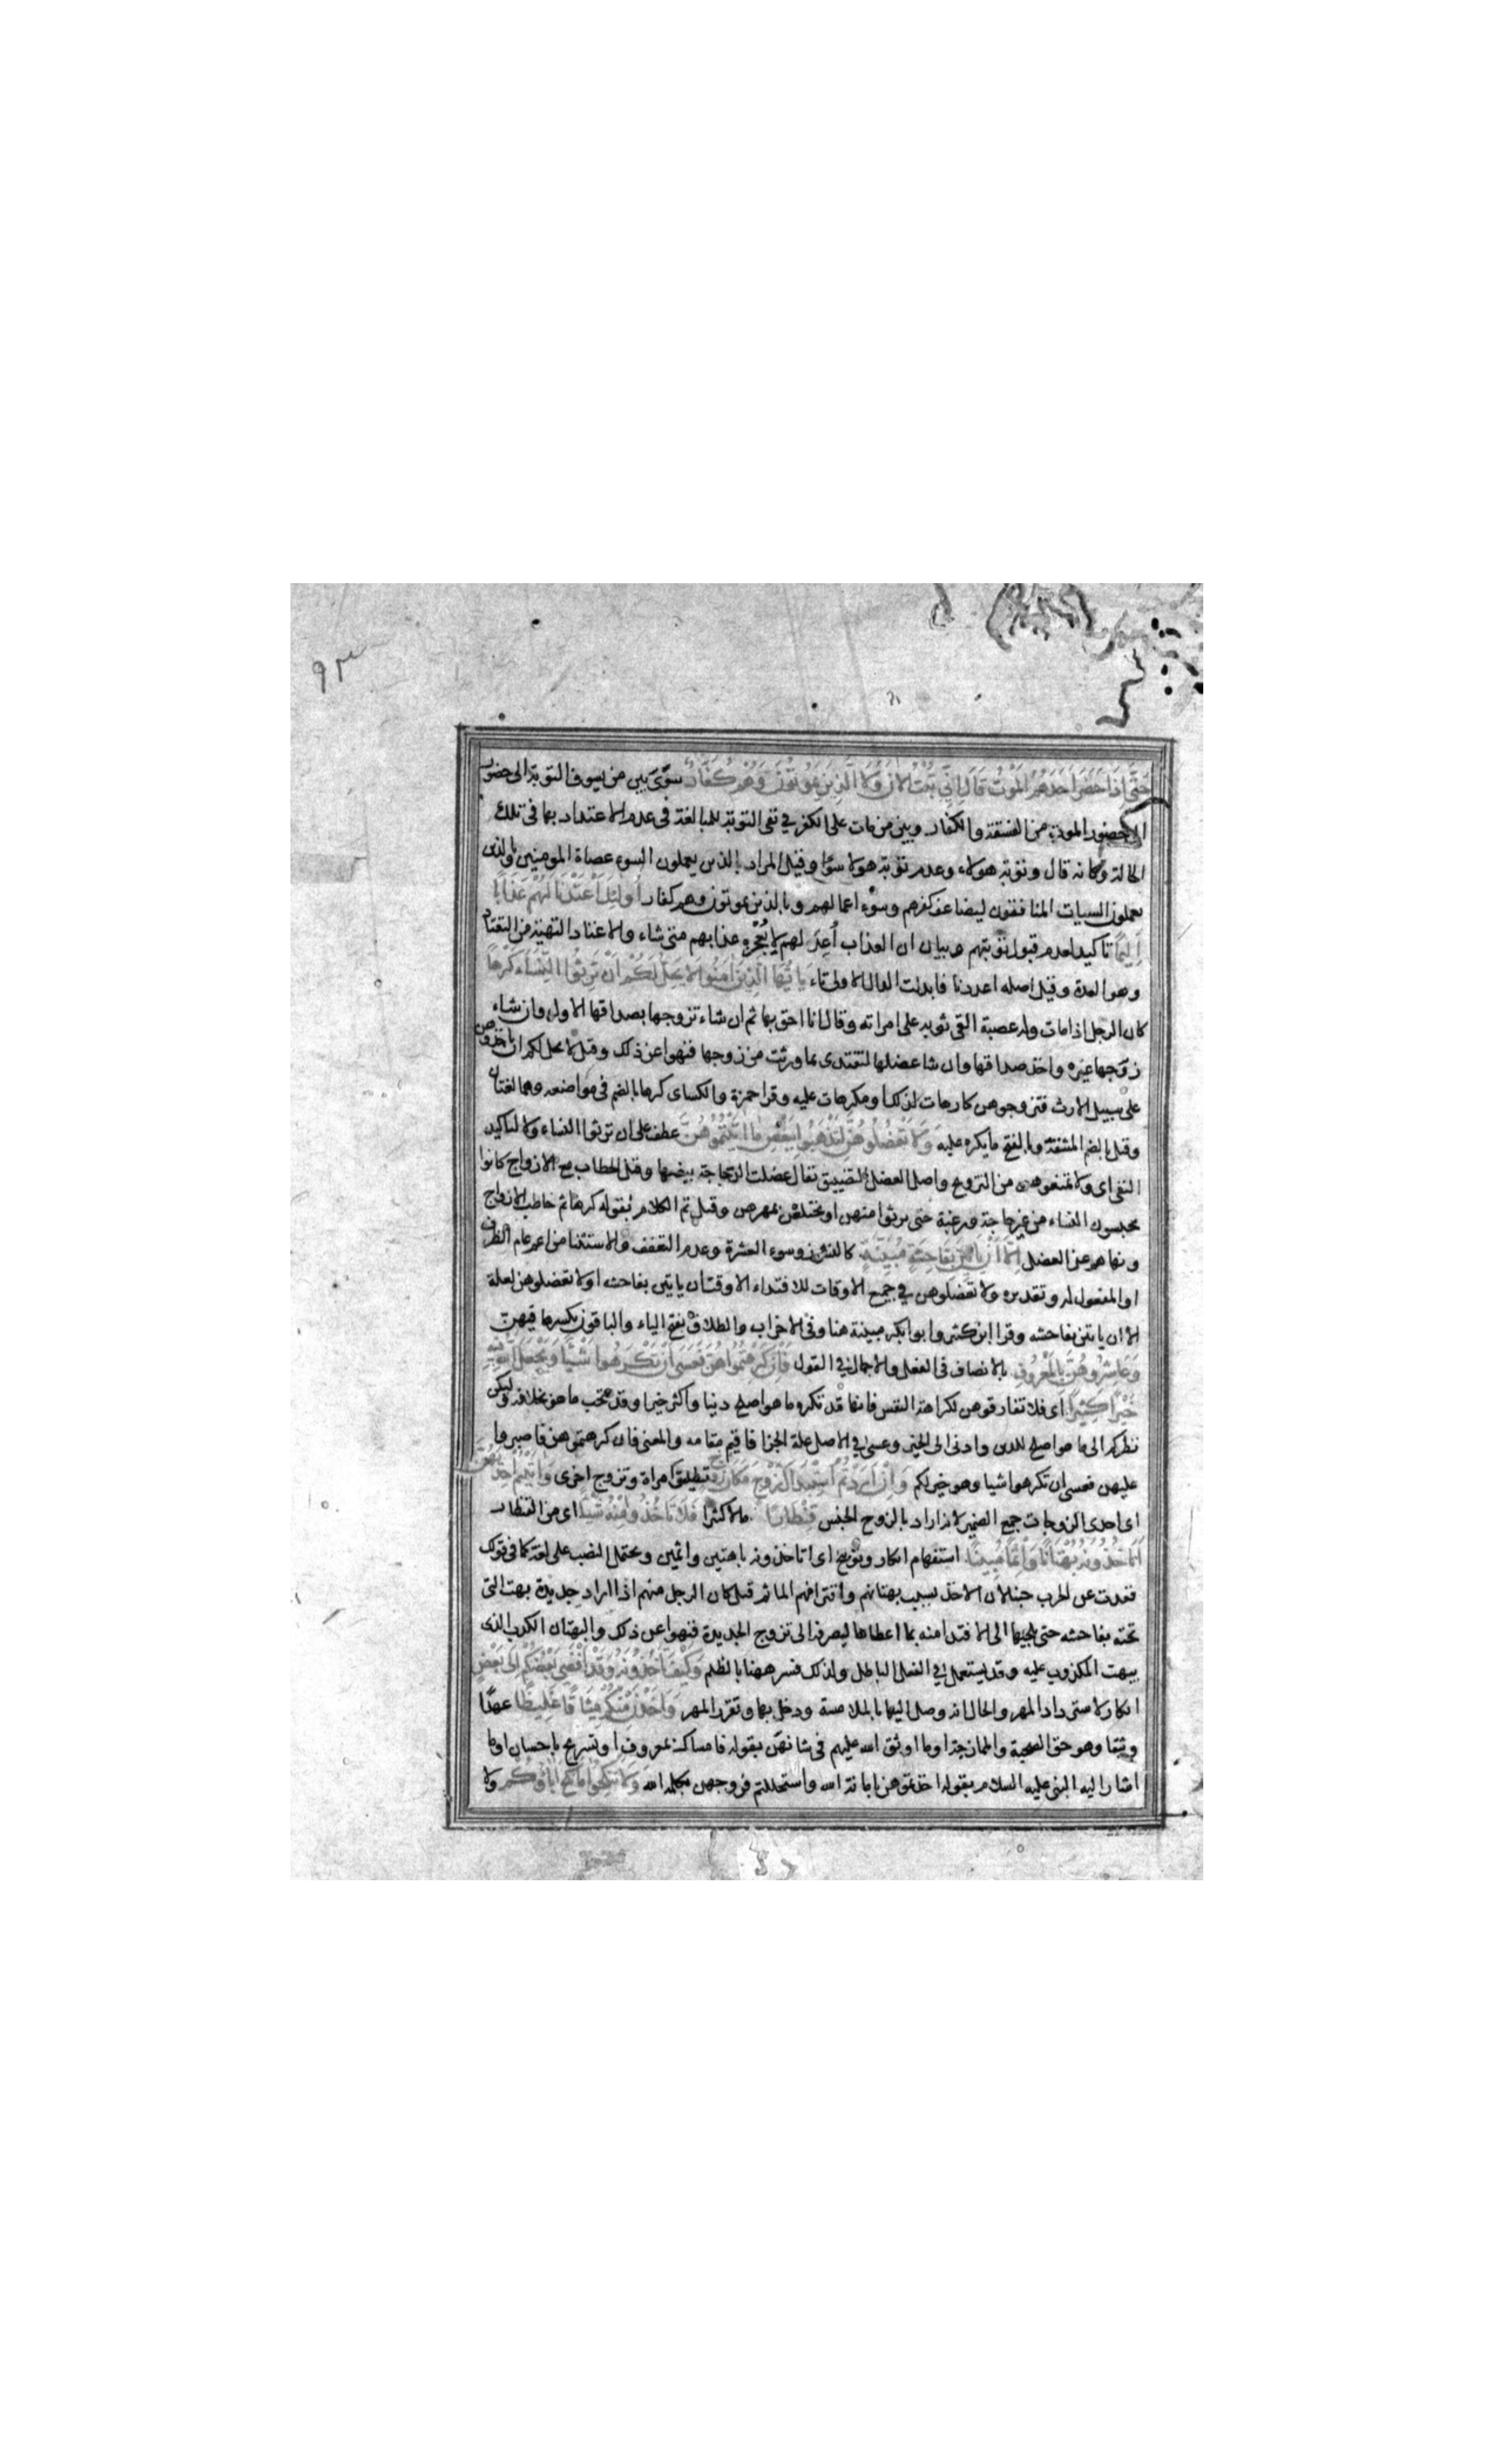 ٩٣
حَتَّى إِذَا حَضَرَ أَحَدَهُمُ الْمَوْتُ قَالَ إِنِّي تُبْتُ الْآنَ وَلَا الَّذِينَ يَمُوتُونَ وَهُمْ كُفَّارٌ سوّى بين من يسوف التوبة الى حضور
الموت من الفسقة والكفار وبين من مات على الكفر في نفى التوبة للمبالغة فى عدم الاعتداد بها فى تلك
الحالة وكانه قال وتوبة هولاء وعدم توبة هولا سوآ وقيل المراد بالذين يعملون السوء عصاة المومنين وبالذين
يعملون السيات المنافقون ليضاعف كفرهم وسوء اعمالهم وبالذين يموتون وهم كفار أُولَئِكَ أَعْتَدْنَا لَهُمْ عَذَابًا
أَلِيمًا تاكيد لعدم قبول توبتهم وبيان ان العذاب أعدّ لهم لا يُعْجِزه عذابهم متى شاء والاعتاد التهيئة من العتاد
وهو العدة وقيل اصله اعددنا فابدلت الدال الاولى تاء يَا أَيُّهَا الَّذِينَ آمَنُوا لَا يَحِلُّ لَكُمْ أَنْ تَرِثُوا النِّسَاءَ كَرْهًا
كان الرجل اذا مات وله عصبة القى ثوبه على امراته وقال انا احق بها ثم ان شاء تزوجها بصداقها الاول وان شاء
زوّجها غيره واخذ صداقها وان شا عضلها لتفتدى بما ورثت من زوجها فنهوا عن ذلك وقيل لا يحل لكم ان تاخذوهن
على سبيل الارث فتزوجوهن كارهات لذلك او مكرهات عليه وقرا حمزة والكساى كرها بالضم فى مواضعه وهما لغتان
وقيل بالضم المشقة وبالفتح ما يكره عليه وَلَا تَعْضُلُوهُنَّ لِتَذْهَبُوا بِبَعْضِ مَا آتَيْتُمُوهُنَّ عطف على ان ترثوا النساء ولا لتاكيد
النفى اى ولا تمنعوهن من التزوج واصل العضل التضييق تقال عضلت الدجاجة ببيضها وقيل الخطاب مع الازواج كانوا
يحبسون النساء من غير حاجة ورغبة حتى يرثوا منهن او يختلعن بمهرهن وقيل تم الكلام بقوله كرها ثم خاطب الازواج
ونهاهم عن العضل إِلَّا أَنْ يَأْتِينَ بِفَاحِشَةٍ مُبَيِّنَةٍ كالنشوز وسوء العشرة وعدم التعفف والاستثنا من اعم عام الظرف
او المفعول له وتقديره ولا تعضلوهن في جميع الاوقات للافتداء الا وقت ان ياتين بفاحشه او لا تعضلوهن لعلة
الا ان ياتين بفاحشه وقرا ابن كثير وابو بكر مبينة هنا وفى الاحزاب والطلاق بفتح الياء والباقون بكسرها فيهن
وَعَاشِرُوهُنَّ بِالْمَعْرُوفِ بالانصاف فى الفعل والاجمال في القول فَإِنْ كَرِهْتُمُوهُنَّ فَعَسَى أَنْ تَكْرَهُوا شَيْئًا وَيَجْعَلَ اللَّهُ فِيهِ
خَيْرًا كَثِيرًا اى فلا تفارقوهن لكراهة النفس فانها قد تكره ما هو اصلح دينا واكثر خيرا وقد تحب ما هو بخلافه وليكن
نظركم الى ما هو اصلح للدين وادنى الى الخير وعسى في الاصل علة الجزا فاقيم مقامه والمعنى فان كرهتموهن فاصبروا
عليهن فعسى ان تكرهوا شيا وهو خير لكم وَإِنْ أَرَدْتُمُ اسْتِبْدَالَ زَوْجٍ مَكَانَ زَوْجٍ تطليق امراة وتزوج اخرى وَآتَيْتُمْ إِحْدَاهُنَّ
اى احدى الزوجات جمع الضمير لانه اراد بالزوج الجنس قِنْطَارًا مالا كثيرا فَلَا تَأْخُذُوا مِنْهُ شَيْئًا اى من القنطار
أَتَأْخُذُونَهُ بُهْتَانًا وَإِثْمًا مُبِينًا استفهام انكار وتوبيخ اى اتاخذونه باهتين واثمين ويحتمل النصب على العلة كما فى قولك
قعدت عن الحرب جبنا لان الاخذ بسبب بهتانهم واقترافهم الماثم قيل كان الرجل منهم اذا اراد جديدة بهت التى
تحته بفاحشه حتى يلجيها الى الافتدا منه بما اعطاها ليصرفه الى تزوج الجديدة فنهوا عن ذلك والبهتان الكذب الذى
يبهت المكذوب عليه وقد يستعمل في الفعل الباطل ولذلك فسر ههنا بالظلم وَكَيْفَ تَأْخُذُونَهُ وَقَدْ أَفْضَى بَعْضُكُمْ إِلَى بَعْضٍ
انكار لاسترداد المهر والحال انه وصل اليها بالملامسة ودخل بها وتقرر المهر وَأَخَذْنَ مِنْكُمْ مِيثَاقًا غَلِيظًا عهدًا
وثيقا وهو حق الصحبة والممازجة او ما اوثق الله عليهم فى شانهن بقوله فامساك بمعروف او تسريح باحسان او ما
اشار اليه النبى عليه السلام بقوله اخذتموهن بامانة الله واستحللتم فروجهن بكلمة الله وَلَا تَنْكِحُوا مَا نَكَحَ آبَاؤُكُمْ ولا